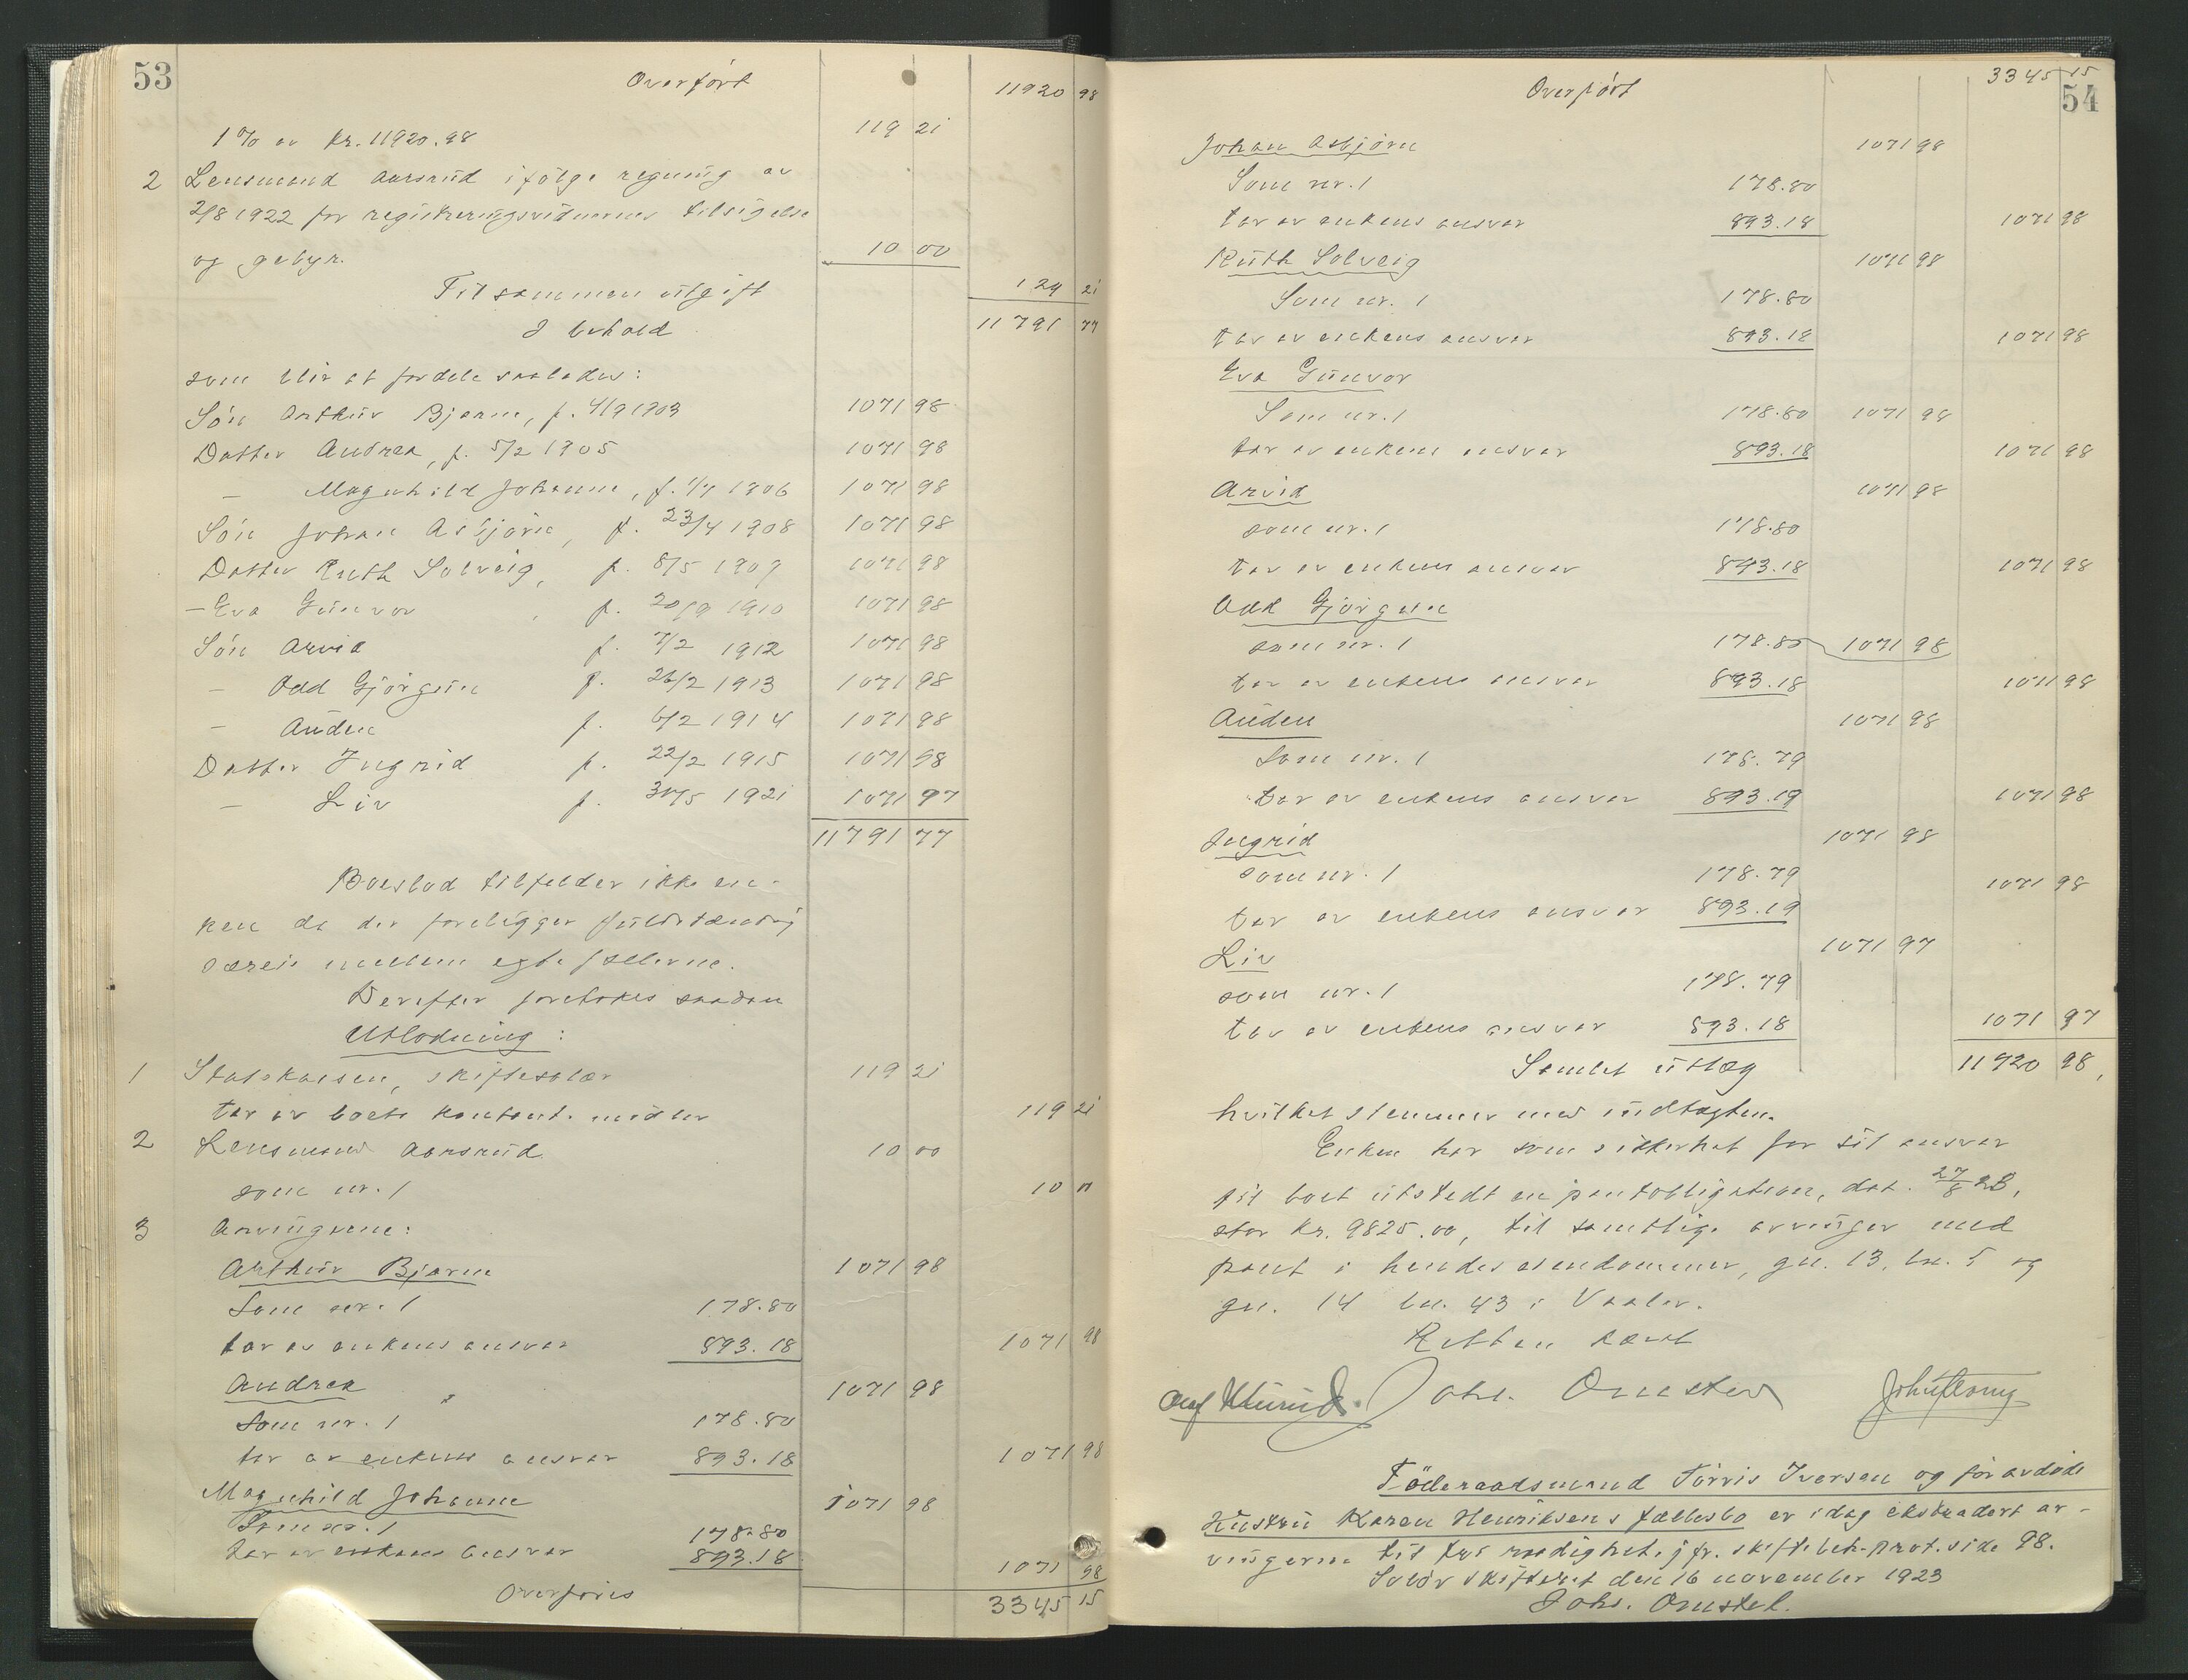 53
Overført 11920 98
1 % av kr. 11920.98 119 21
2 Lensmand Aarsrud ifølge regning av
2/8 1922 for registreringsvidnernes tilsigelse
og gebyr. 10 00
Tilsammen utgift 129 21
I behold 11791 77
som blir at fordele saaledes:
Søn Arthur Bjarne, f. 4/9 1903 1071 98
Datter Andrea, f. 5/2 1905 1071 98
— Magnhild Johanne, f. 1/7 1906 1071 98
Søn Johan Asbjørn, f. 23/4 1908 1071 98
Datter Ruth Solveig, f. 8/5 1909 1071 98
— Eva Gunvor, f. 20/9 1910 1071 98
Søn Arvid f. 7/2 1912 1071 98
— Odd Gjørgen f. 26/2 1913 1071 98
— Auden f. 6/2 1914 1071 98
Datter Ingrid f. 22/2 1915 1071 98
— Liv f. 30/5 1921 1071 97
11791 77
Boeslod tilfalder ikke en-
ken da der foreligger fuldstændig
særeie mellem egtefællerne.
Derefter foretokes saadan
Utlodning:
1 Statskassen, skiftesalær 119 21
tar av boets kontant. midler 119 21
2 Lensmand Aarsrud 10 00
som nr. 1 10 00
3 Arvingerne:
Arthur Bjarne 1071 98
Som nr. 1 178.80
tar av enkens ansvar 893.18 1071 98
Andrea 1071 98
Som nr. 1 178.80
tar av enkens ansvar 893.18 1071 98
Magnhild Johanne 1071 98
Som nr. 1 178.80
tar av enkens ansvar 893.18 1071 98
Overføres 3345 15
54
Overført 3345 15
Johan Asbjørn 1071 98
Som nr. 1 178.80
tar av enkens ansvar 893.18 1071 98
Ruth Solveig 1071 98
Som nr. 1 178.80
tar av enkens ansvar 893.18 1071 98
Eva Gunvor
Som nr. 1 178.80 1071 98
tar av enkens ansvar 893.18 1071 98
Arvid 1071 98
som nr. 1 178.80
tar av enkens ansvar 893.18 1071 98
Odd Gjørgen
som nr. 1 178.80 1071 98
tar av enkens ansvar 893.18 1071 98
Auden 1071 98
Som nr. 1 178.79
tar av enkens ansvar 893.19 1071 98
Ingrid 1071 98
som nr. 1 178.79 1071 98
tar av enkens ansvar 893.19
Liv 1071 97
som nr. 1 178.79
tar av enkens ansvar 893.18 1071 97
Samlet utlæg 11920 98,
hvilket stemmer med indtægten.
Enken har som sikkerhet for sit ansvar
til boet utstedt en pantobligation, dat. 27/8 23,
stor kr. 9825.00, til samtlige arvinger med
pant i hendes eiendommer, gn. 13, bn. 5 og
gn. 14 bn. 43 i Vaaler.
Retten hævt
Johs. Omsted
Føderaadsmand Torris Iversen og før avdøde
Hustru Karen Henriksens fællesbo er idag ekstradert ar-
vingerne til fri raadighet, jfr. skiftebeh.prot. side 98.
Solør skifteret den 16 november 1923
Johs. Omsted.